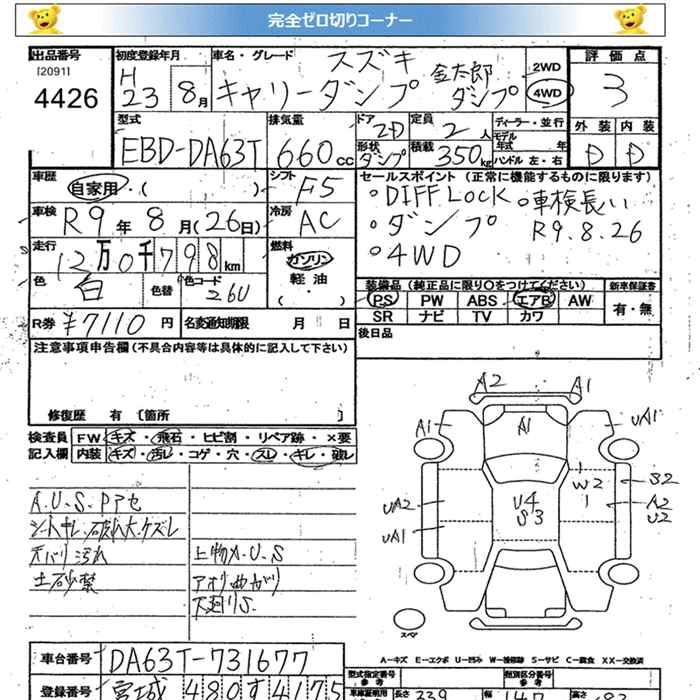 完全ゼロ切りコーナー
出品番号 初度登録年月 車名・グレード スズキ 評価点
[2091] H 23 8月 キャリーダンプ 金太郎 ダンプ 2WD 4WD 3
4426
型式 排気量 ドア 2D 定員 2人 ディーラー・並行 外装 内装
EBD-DA63T 660cc 形状 ダンプ 積載 350kg モデル年式 年 ハンドル 左・右 D D
車歴 自家用・( ) シフト F5
セールスポイント (正常に機能するものに限ります)
・DIFF LOCK ・車検長い
・ダンプ R9.8.26
・4WD
車検 R9年8月(26日) 冷房 AC
走行 12万0千798km 燃料 ガソリン・軽油・( )
色 白 色替 色コード 26U
装備品 (純正品に限り〇をつけてください) 新車保証書
PS PW ABS エアB AW 有・無
SR ナビ TV カワ
R券 ¥7110円 名変通知期限 月 日
後日品
注意事項申告欄(不具合内容等は具体的に記入して下さい)
修復歴 有 [箇所 ]
検査員 FW キズ・飛石・ヒビ割・リペア跡・×要
記入欄 内装 キズ・汚レ・コゲ・穴・スレ・キレ・
A.U.S.Pアセ
シートキレ.破れ大.ケズレ
天バリ汚れ 上物A.U.S
土砂禁 アオリ曲がり
下廻りS.
A2 A1
A1 A1 UA1
W2 S2
UA2 U4 A2
S3 U2
UA1
スペア
A-キズ E-エクボ U-凹ミ W-補修跡 S-サビ C-腐食 XX-交換済
車台番号 DA63T-731677 型式指定番号 参考 類別区分番号 参考
登録番号 宮城 480 す 4175 長さ 339 幅 147 高さ